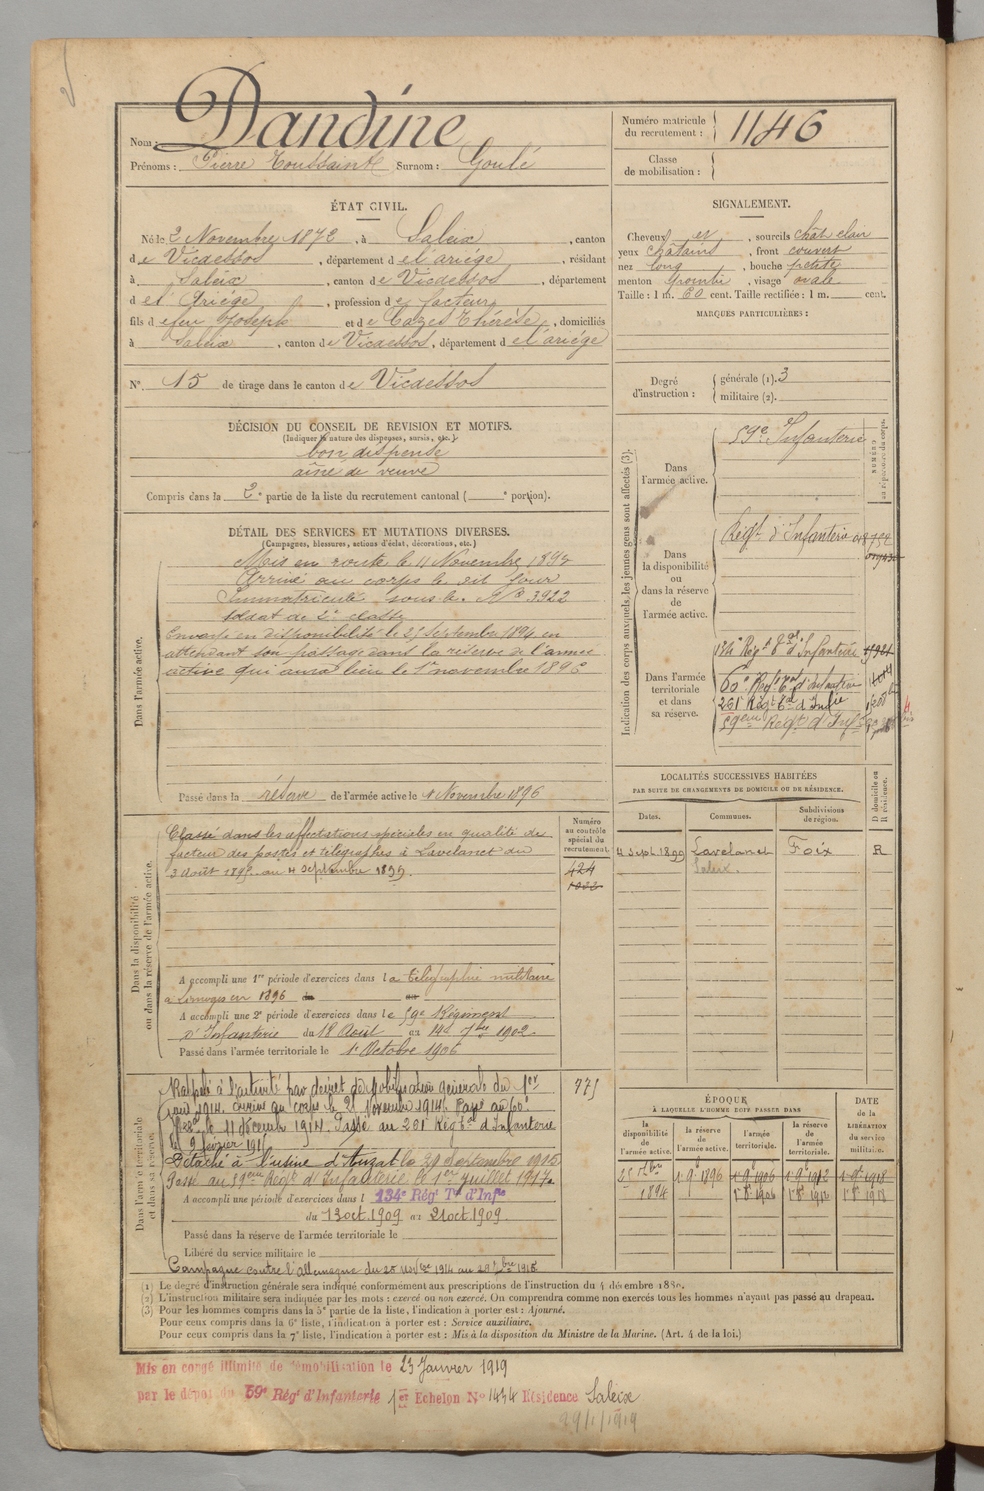 Nom : Dandine
Prénoms : Pierre Toussaint Surnom : Goulé
ÉTAT CIVIL.
Né le 2 Novembre 1872, à Saleix, canton
de Vicdessos, département de l'ariége, résidant
à Saleix, canton de Vicdessos, département
de l'Ariége, profession de facteur
fils de feu Joseph et de Cazes Thérèse, domiciliés
à Saleix, canton de Vicdessos, département de l'ariége
N° 15 de tirage dans le canton de Vicdessos
DÉCISION DU CONSEIL DE REVISION ET MOTIFS.
(Indiquer la nature des dispenses, sursis, etc.)
bon dispensé
aîné de veuve
Compris dans la 2e partie de la liste du recrutement cantonal ( e portion).
DÉTAIL DES SERVICES ET MUTATIONS DIVERSES.
(Campagnes, blessures, actions d'éclat, décorations, etc.)
Dans l'armée active.
Mis en route le 11 Novembre 1893
Arrivé au corps le dit jour
Immatriculé sous le N° 3922
soldat de 2e classe
Envoyé en disponibilité le 25 Septembre 1894 en
attendant son passage dans la réserve de l'armée
active qui aura lieu le 1er novembre 1896
Passé dans la réserve de l'armée active le 1 Novembre 1896
Dans la disponibilité
ou dans la réserve de l'armée active.
Numéro
au contrôle
spécial du
recrutement.
424
Classé dans les affectations spéciales en qualité de
facteur des postes et télégraphes à Lavelanet du
3 Août 189 au 4 septembre 1899.
A accompli une 1re période d'exercices dans la télégraphie militaire
à Limoges en 1896 du au
A accompli une 2e période d'exercices dans le 59e Régiment
d'Infanterie du 18 Août au 14 7bre 1902.
Passé dans l'armée territoriale le 1er Octobre 1906
Dans l'armée territoriale
et dans sa réserve.
775
Rappelé à l'activité par décret de Mobilisation générale du 1er
août 1914. Arrivé au corps le 21 Novembre 1914. Passé au 60e
le 11 Décembre 1914. Passé au 261 Régt d'Infanterie
le 9 février 1916
Détaché à l'usine d'Auzat le 29 Septembre 1916
Passé au 59ème Régt d'Infanterie le 1er Juillet 1917.
A accompli une période d'exercices dans l 134e Rég Tal d'Infie
du 13 oct. 1909 au 21 oct 1909.
Passé dans la réserve de l'armée territoriale le
Libéré du service militaire le
Campagne contre l'allemagne du 20 Novbre 1914 au 29 7bre 1916
Numéro matricule
du recrutement : 1146
Classe
de mobilisation :
SIGNALEMENT.
Cheveux et, sourcils chât clair
yeux châtains, front couvert
nez long, bouche petite
menton pointu, visage ovale
Taille : 1 m. 60 cent. Taille rectifiée : 1 m. cent.
MARQUES PARTICULIÈRES :
Degré
d'instruction :
générale (1). 3
militaire (2).
Indication des corps auxquels les jeunes gens sont affectés (3).
NUMÉRO
au répertoire du corps.
Dans
l'armée active.
59e Infanterie
Dans
la disponibilité
ou
dans la réserve
de
l'armée active.
Régt d'Infanterie
Dans l'armée
territoriale
et dans
sa réserve.
134e Régt Tal d'Infanterie
60e Régt Tal d'Infanterie
261e Régt Tal d'Infie
59ème Régt d'Inf
LOCALITÉS SUCCESSIVES HABITÉES
PAR SUITE DE CHANGEMENTS DE DOMICILE OU DE RÉSIDENCE.
D domicile ou
R résidence.
Dates. Communes. Subdivisions
de région.
4 Sept. 1899 Lavelanet Foix R
Saleix.
ÉPOQUE
À LAQUELLE L'HOMME DOIT PASSER DANS
DATE
de la
LIBÉRATION
du service
militaire.
la
disponibilité
de
l'armée active.
la réserve
de
l'armée active.
l'armée
territoriale.
la réserve
de
l'armée
territoriale.
25 7bre 1894
1 9e 1896
1 9e 1906
1 9e 1912
1 9e 1918
1er 8e 1906
1er 8e 1912
1er 8e 1918
(1) Le degré d'instruction générale sera indiqué conformément aux prescriptions de l'instruction du 4 décembre 1889.
(2) L'instruction militaire sera indiquée par les mots : exercé ou non exercé. On comprendra comme non exercés tous les hommes n'ayant pas passé au drapeau.
(3) Pour les hommes compris dans la 5e partie de la liste, l'indication à porter est : Ajourné.
Pour ceux compris dans la 6e liste, l'indication à porter est : Service auxiliaire.
Pour ceux compris dans la 7e liste, l'indication à porter est : Mis à la disposition du Ministre de la Marine. (Art. 4 de la loi.)
Mis en congé illimité de démobilisation le 23 Janvier 1919
par le dépôt du 59e Rég d'Infanterie 1er Echelon N° 1434 Résidence Saleix
29/1/1919